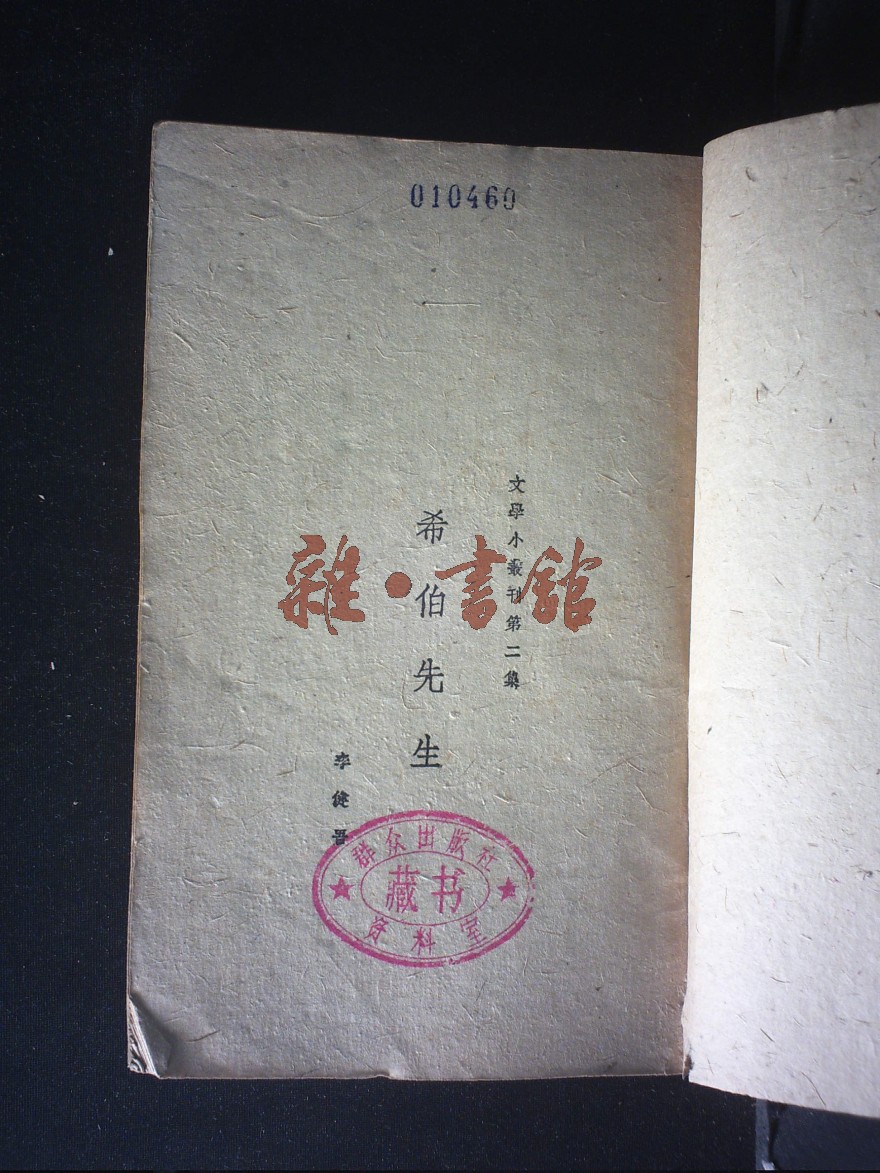 010460
文學小叢刊第二集
希伯先生
李健吾
雜·書館
群众出版社
藏书
资料室